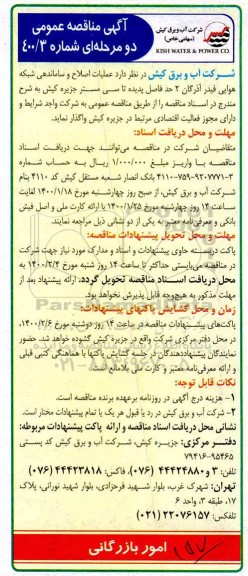 شرکت آب و برق کیش
(سهامی خاص)
KISH WATER & POWER CO.
آگهی مناقصه عمومی
دو مرحله‌ای شماره ۴۰۰/۳
شرکت آب و برق کیش در نظر دارد عملیات اصلاح و ساماندهی شبکه
هوایی فیدر آذرگان ۲ حد فاصل پدیده تا سنی مستر جزیره کیش به شرح
مندرج در اسناد مناقصه را از طریق مناقصه عمومی به شرکت واجد شرایط و
دارای مجوز فعالیت اقتصادی مرتبط در جزیره کیش واگذار نماید.
مهلت و محل دریافت اسناد:
متقاضیان شرکت در مناقصه می‌توانند جهت دریافت اسناد
مناقصه با واریز مبلغ ۱/۰۰۰/۰۰۰ ریال به حساب شماره
۴۱۱۰-۷۵۹-۹۲۰۷۷۷۱-۳ بانک انصار شعبه مستقل کیش کد ۴۱۱۰ بنام
شرکت آب و برق کیش، از صبح روز چهارشنبه مورخ ۱۴۰۰/۱/۱۸ لغایت
ساعت ۱۴ روز چهارشنبه مورخ ۱۴۰۰/۱/۲۵ با ارائه کارت ملی و اصل فیش
بانکی و معرفی‌نامه معتبر به یکی از دو نشانی ذیل مراجعه نمایند.
مهلت و محل تحویل پیشنهادات مناقصه:
پاکت دربسته حاوی پیشنهادات و اسناد و مدارک مورد نیاز جهت شرکت
در مناقصه می‌بایستی حداکثر تا ساعت ۱۴ روز شنبه مورخ ۱۴۰۰/۲/۴ به
محل دریافت اسناد مناقصه تحویل گردد. ارائه پیشنهاد بعد از
مهلت مذکور به هیچ‌وجه قابل پذیرش نخواهد بود.
زمان و محل گشایش پاکتهای پیشنهادات:
پاکت‌های پیشنهادات مناقصه در ساعت ۱۴ روز دوشنبه مورخ ۱۴۰۰/۲/۶
در محل دفتر مرکزی شرکت واقع در جزیره کیش گشوده خواهد شد. حضور
نمایندگان پیشنهاددهندگان در جلسه گشایش پاکتها با هماهنگی کتبی قبلی
و ارائه معرفی‌نامه معتبر و کارت ملی بلامانع می‌باشد.
نکات قابل توجه:
۱- هزینه درج آگهی در روزنامه برعهده برنده مناقصه است.
۲- شرکت آب و برق کیش در رد یا قبول هر یک یا تمام پیشنهادات مختار است.
نشانی محل دریافت اسناد مناقصه و ارائه پاکت پیشنهادات مربوطه:
دفتر مرکزی: جزیره کیش، شرکت آب و برق کیش کد پستی
۷۹۴۱۶-۹۵۴۶۵
تلفن: ۳ و ۴۴۴۲۴۸۸۰ (۰۷۶)، فاکس: ۴۴۴۲۳۸۱۸ (۰۷۶)
تهران: شهرک غرب، بلوار شهید فرحزادی، بلوار شهید نورانی، پلاک
۱۷، طبقه ۳، واحد ۶
تلفکس: ۲۲۰۷۶۱۵۷ (۰۲۱)
امور بازرگانی